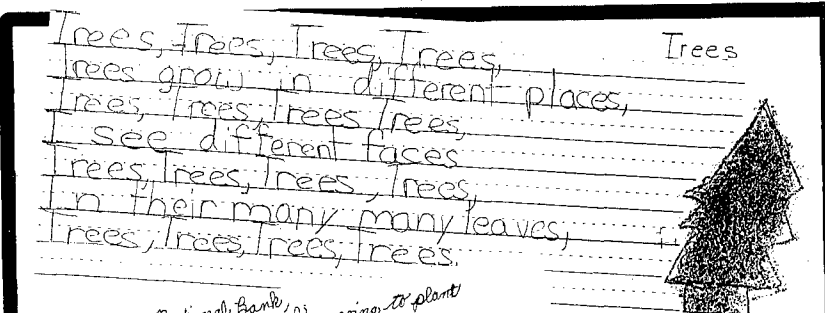 Trees
Trees, Trees, Trees, Trees,
Trees grow in different places,
Trees, Trees, Trees Trees,
I see different faces
Trees, Trees, Trees, Trees,
In their many many leaves,
Trees, Trees, Trees, Trees.
Bank, to plant